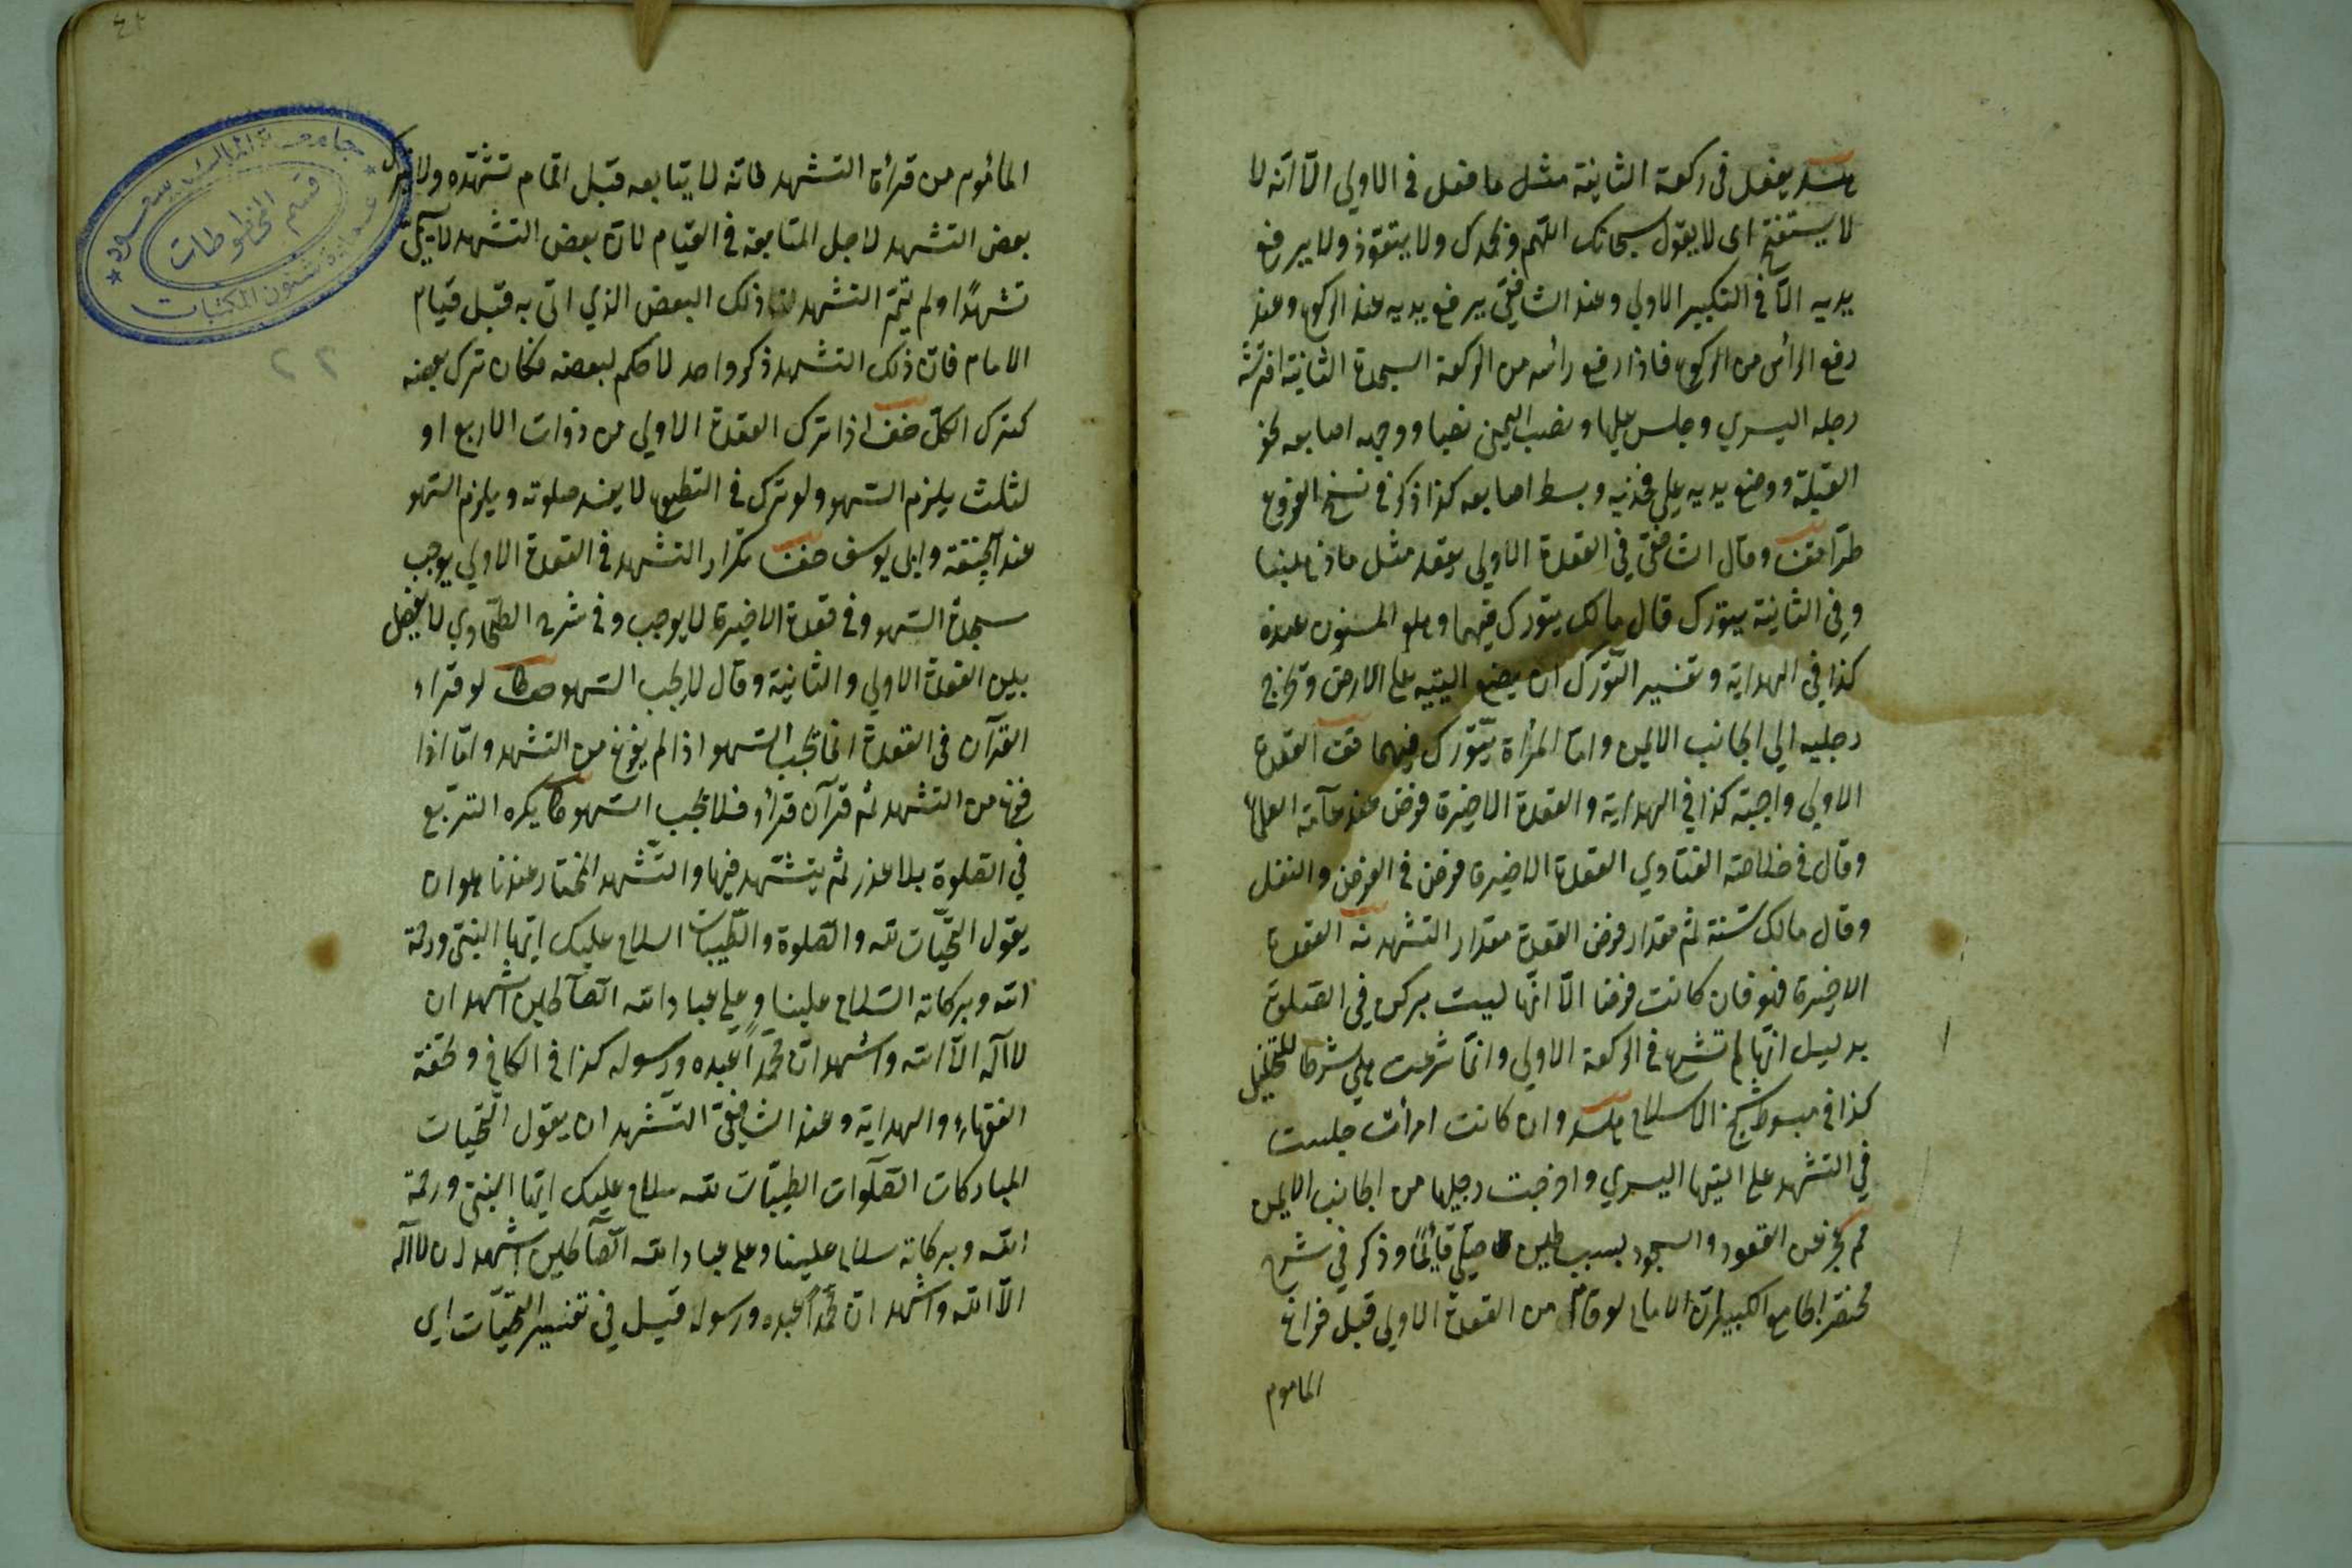 يفعل فى ركعة الثانية مثل ما فعل فى الاولى الا انه لا
لا يستفتح اى لا يقول سبحانك اللهم وبحمدك ولا يتعوذ ولا يرفع
يديه الا فى التكبير الاولى وعند الشافعى يرفع يديه عند الركوع وعند
رفع الرأس من الركوع فاذا رفع رأسه من الركعة السجدة الثانية افترش
رجله اليسرى وجلس عليها ونصب اليمنى نصبا ووجه اصابعه نحو
القبلة ووضع يديه على فخذيه وبسط اصابعه كذا ذكر فى نسخ الفروع
وقال الشافعى فى القعدة الاولى يقعد مثل ما ذهبنا
وفى الثانية يتورك قال مالك يتورك فيهما وهو المسنون عنده
كذا فى الهداية وتفسير التورك ان يضع اليتيه على الارض وتخرج
رجليه الى الجانب الايمن واما المرأة تتورك فيهما القعدة
الاولى واجبة كذا فى الهداية والقعدة الاخيرة فرض عند عامة العلماء
وقال فى خلاصة الفتاوى القعدة الاخيرة فرض فى الفرض والنفل
وقال مالك سنة ثم مقدار فرض القعدة مقدار التشهد القعدة
الاخيرة فهو فان كانت فرضا الا انها ليست بركن فى الصلوة
بدليل انها لم تشرع فى الركعة الاولى وانما شرعت هى شرطا للتحليل
كذا فى مبسوط شيخ الاسلام وان كانت امرأة جلست
فى التشهد على اليتها اليسرى واخرجت رجليها من الجانب الايمن
عجز عن القعود والسجود بسبب طين صلى قائما وذكر فى شرح
مختصر الجامع الكبير ان الامام لو قام من القعدة الاولى قبل فراغ
الماموم
المأموم من قرأة التشهد فانه لا يتابعه قبل اتمام تشهده ولا يترك
بعض التشهد لاجل المتابعة فى القيام لان بعض التشهد لا
تشهدا ولم يتم التشهد ذلك البعض الذى اتى به قبل قيام
الامام فان ذلك التشهد ذكر واحد لا حكم لبعضه فكان ترك بعضه
كترك الكل اذا ترك القعدة الاولى من ذوات الاربع او
لثلث يلزم السهو ولو ترك فى التطوع لا يفسد صلوته ويلزم السهو
عند ابى حنيفة وابى يوسف تكرار التشهد فى القعدة الاولى يوجب
سجدة السهو وفى قعدة الاخيرة لا يوجب وفى شرح الطحاوى لا يفصل
بين القعدة الاولى والثانية وقال لا يجب السهو لو قرأ
القرآن فى القعدة انما يجب السهو اذا لم يفرغ من التشهد واما اذا
فرغ من التشهد ثم قرآن قرأ فلا يجب السهو يكره التربع
فى الصلوة بلا عذر ثم يتشهد فيها والتشهد المختار عندنا هو ان
يقول التحيات لله والصلوة والطيبات السلام عليك ايها النبى ورحمة
الله وبركاته السلام علينا وعلى عباد الله الصالحين اشهد ان
لا اله الا الله واشهد ان محمدا عبده ورسوله كذا فى الكافى وتحفة
الفقهاء والهداية وعند الشافعى التشهد ان يقول التحيات
المباركات الصلوات الطيبات لله سلام عليك ايها النبى ورحمة
الله وبركاته سلام علينا وعلى عباد الله الصالحين اشهد ان لا اله
الا الله واشهد ان محمدا عبده ورسوله قيل فى تفسير التحيات اى
جامعة الملك سعود
قسم المخطوطات
عمادة شئون المكتبات
٢٢